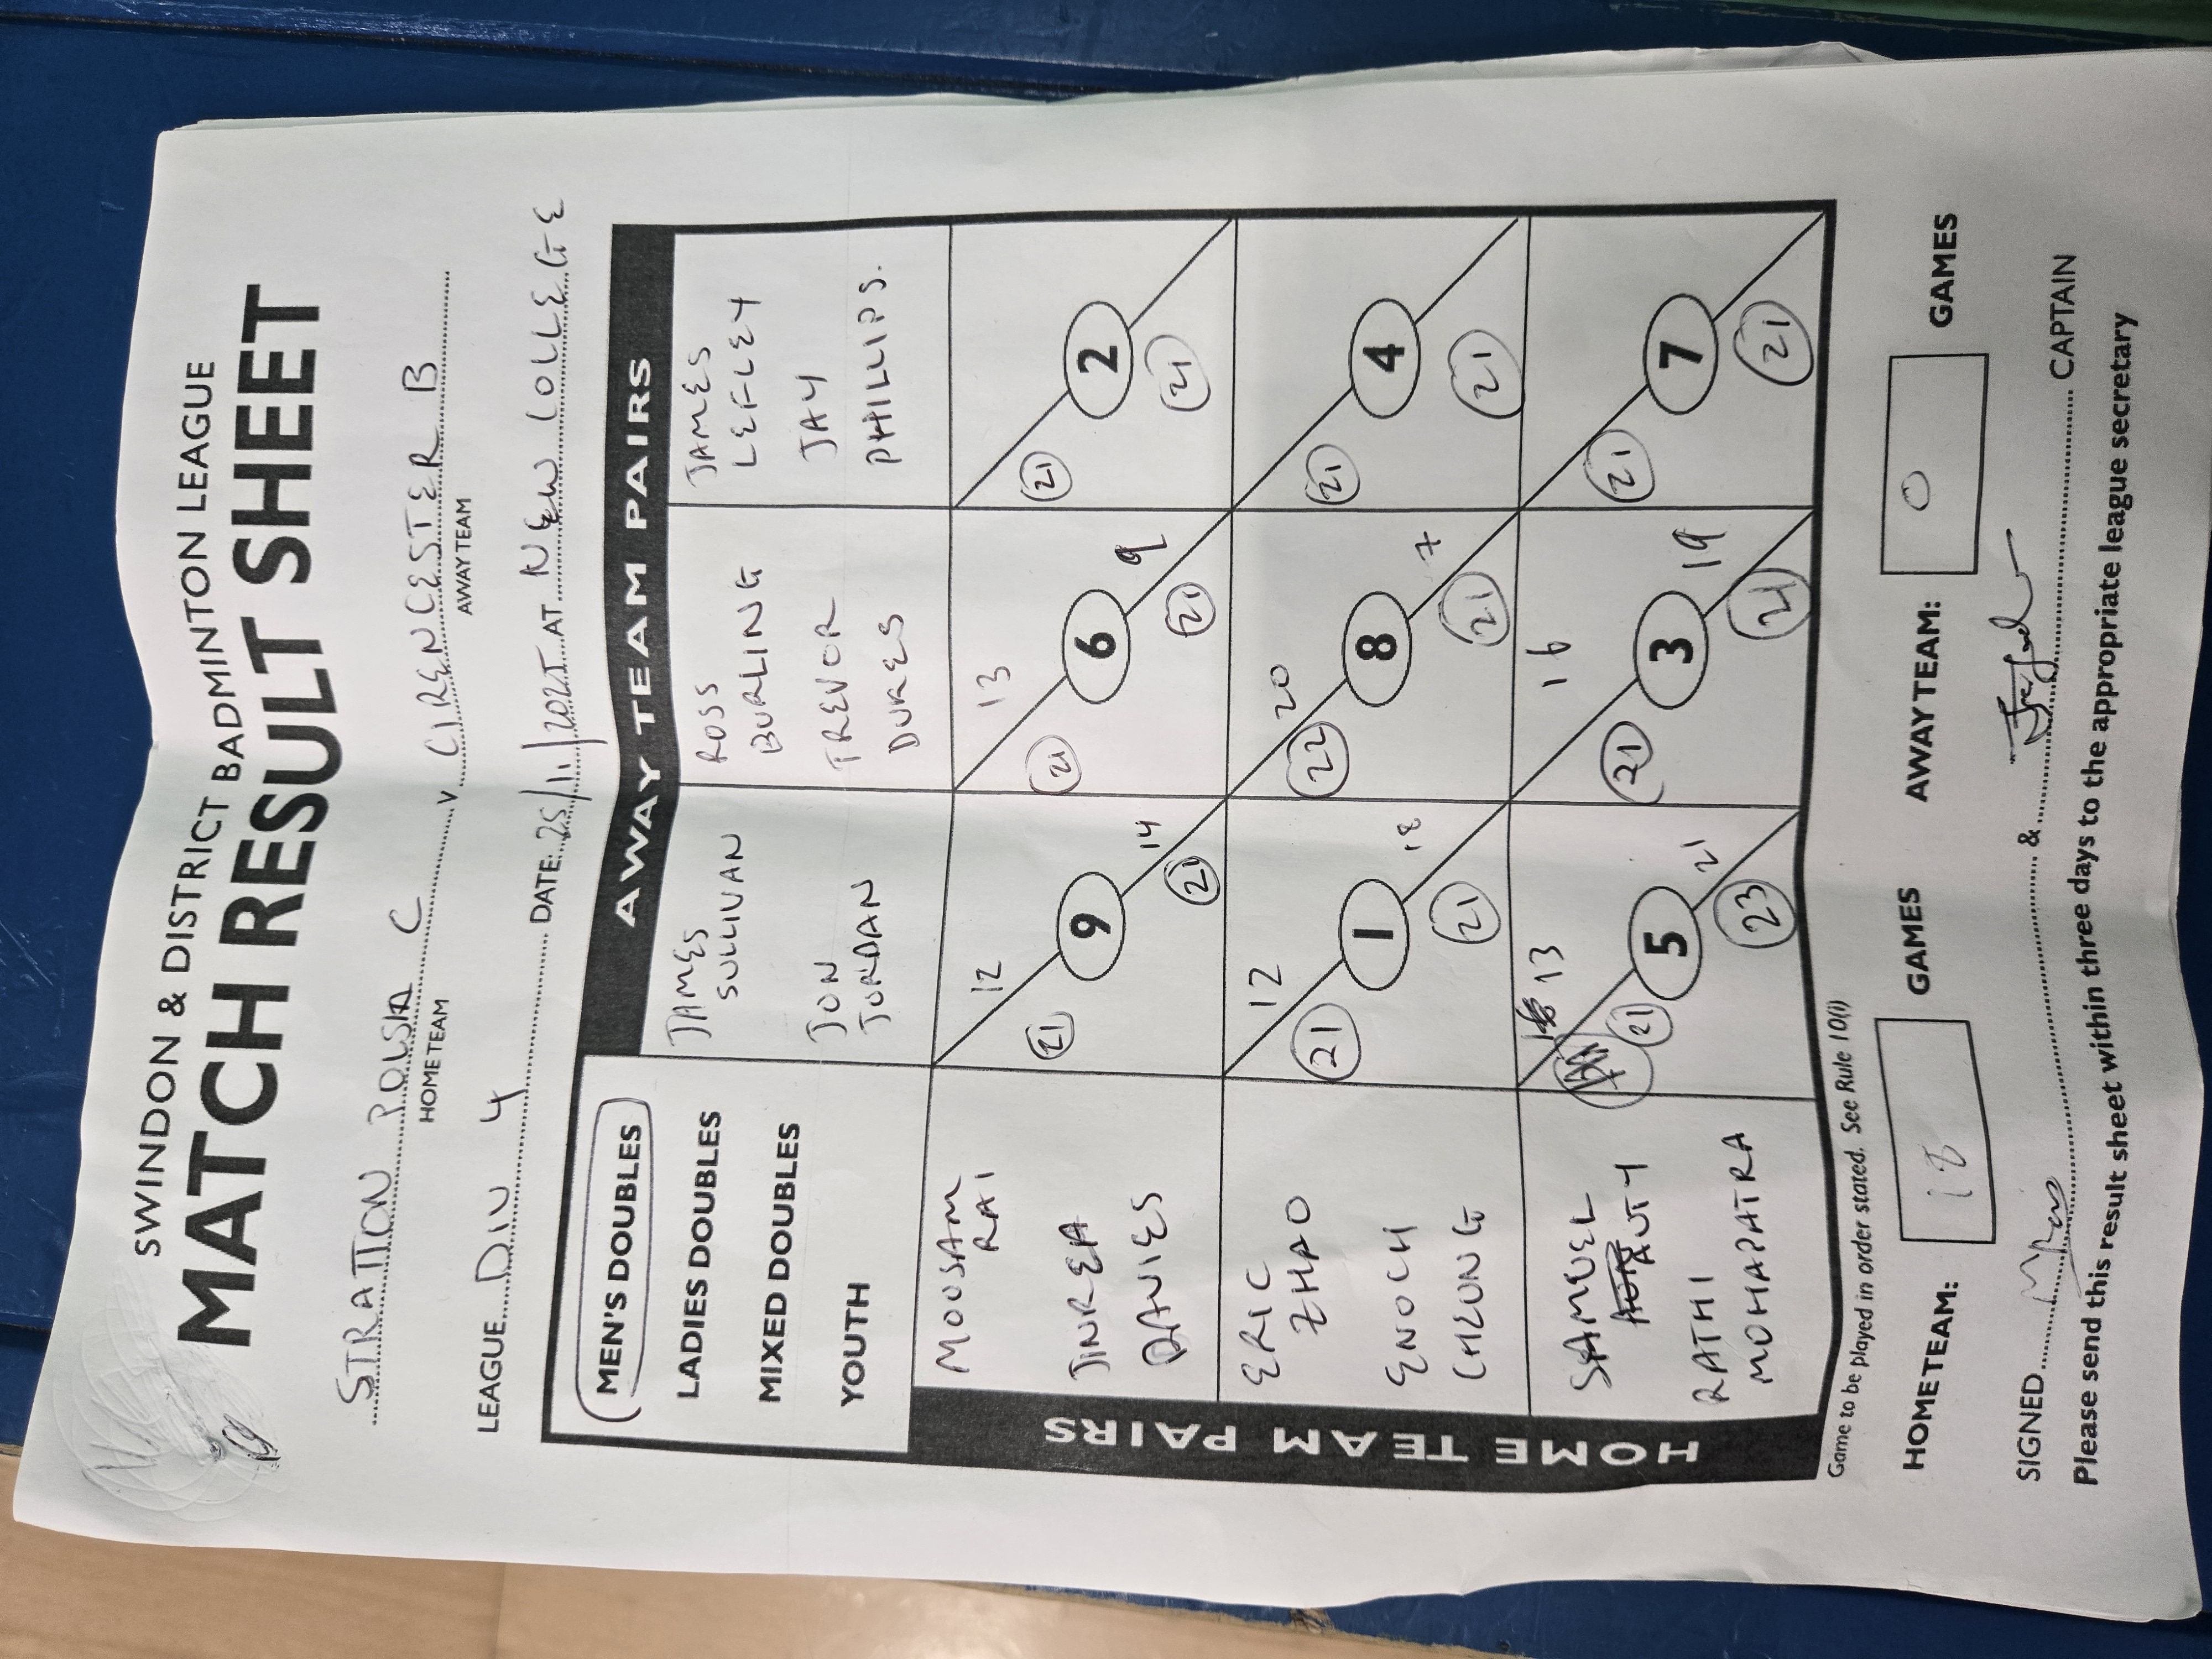 SWINDON & DISTRICT BADMINTON LEAGUE
MATCH RESULT SHEET
STRATTON C v CIRENCESTER B
HOME TEAM AWAY TEAM
LEAGUE DIV 4 DATE: 25/11/2025 AT NEW COLLEGE
MEN'S DOUBLES
LADIES DOUBLES
MIXED DOUBLES
YOUTH
AWAY TEAM PAIRS
JAMES
SULLIVAN
JON
JORDAN
ROSS
BURLING
TREVOR
DUKES
JAMES
LEFLEY
JAY
PHILLIPS.
HOME TEAM PAIRS
MOUSAM
RAI
JINREA
DAVIES
12
21 9 14
21
13
21 6 9
21
21 2
21
ERIC
ZHAO
ENOCH
CHEUNG
12
21 1 18
21
20
22 8 7
21
21 4
21
SAMUEL
AUTY
RATHI
MOHAPATRA
13
21 5 21
23
16
21 3 19
21
21 7
21
Game to be played in order stated. See Rule 10(i)
HOME TEAM: 18 GAMES AWAY TEAM: 0 GAMES
SIGNED & CAPTAIN
Please send this result sheet within three days to the appropriate league secretary